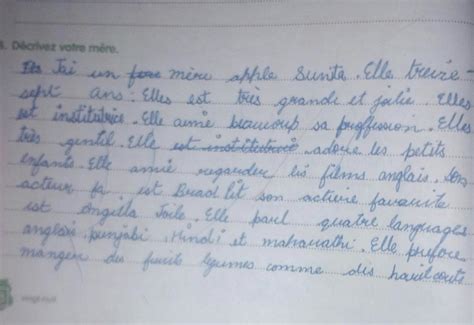 3. Décrivez votre mère.
J'ai un mère apple Sunta. Elle treize-
sept ans. Elles est très grande et jolie. Elles
est institutrice. Elle amie beaucoup sa proffession. Elles
très gentil. Elle est institutrice adore les petits
enfants. Elle amie regarder lis films anglais. Son
acteur fa est Brad lit son actrive favarite
est Angilla Joile. Elle parl quatre languages
anglais, punjabi, Hindi et maharathi. Elle prefore
manger des fruits légumes comme dis haricouts
vingt-huit